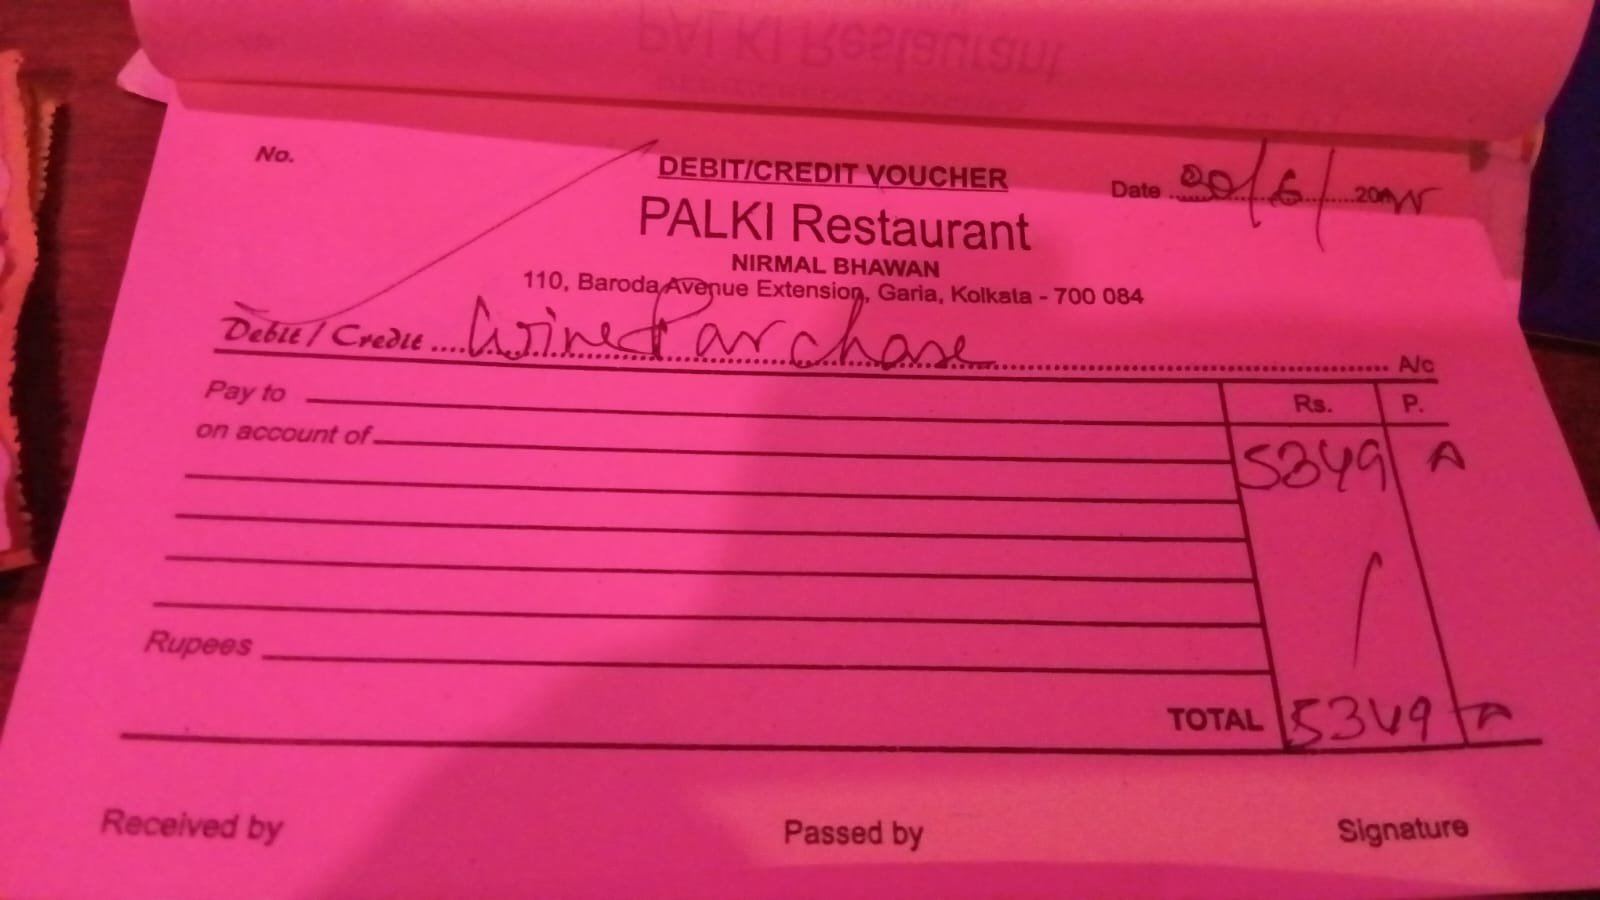 No.
DEBIT/CREDIT VOUCHER
Date 20/6/20
PALKI Restaurant
NIRMAL BHAWAN
110, Baroda Avenue Extension, Garia, Kolkata - 700 084
Debit / Credit Wine Parchase A/c
Pay to
Rs. P.
on account of
5349
Rupees
TOTAL 5349
Received by Passed by Signature